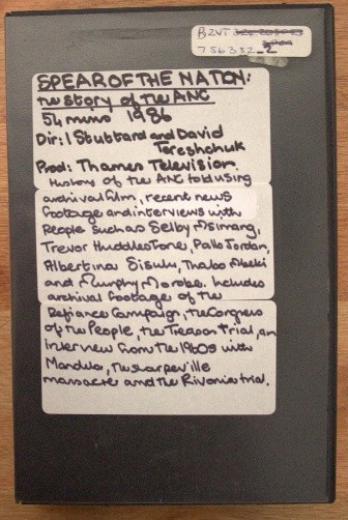 BZVT
756332_2
SPEAR OF THE NATION:
the story of the ANC
54 mins 1986
Dir: I Stuttard and David
Tereshchuk
Prod: Thames Television.
History of the ANC told using
archival film, recent news
footage and interviews with
People such as Selby Msimang,
Trevor Huddlestone, Pallo Jordan,
Albertina Sisulu, Thabo Mbeki
and Murphy Morobe. Includes
archival footage of the
Defiance Campaign, the Congress
of the People, the Treason Trial, an
interview from the 1960s with
Mandela, the sharpeville
massacre and the Rivonia trial.